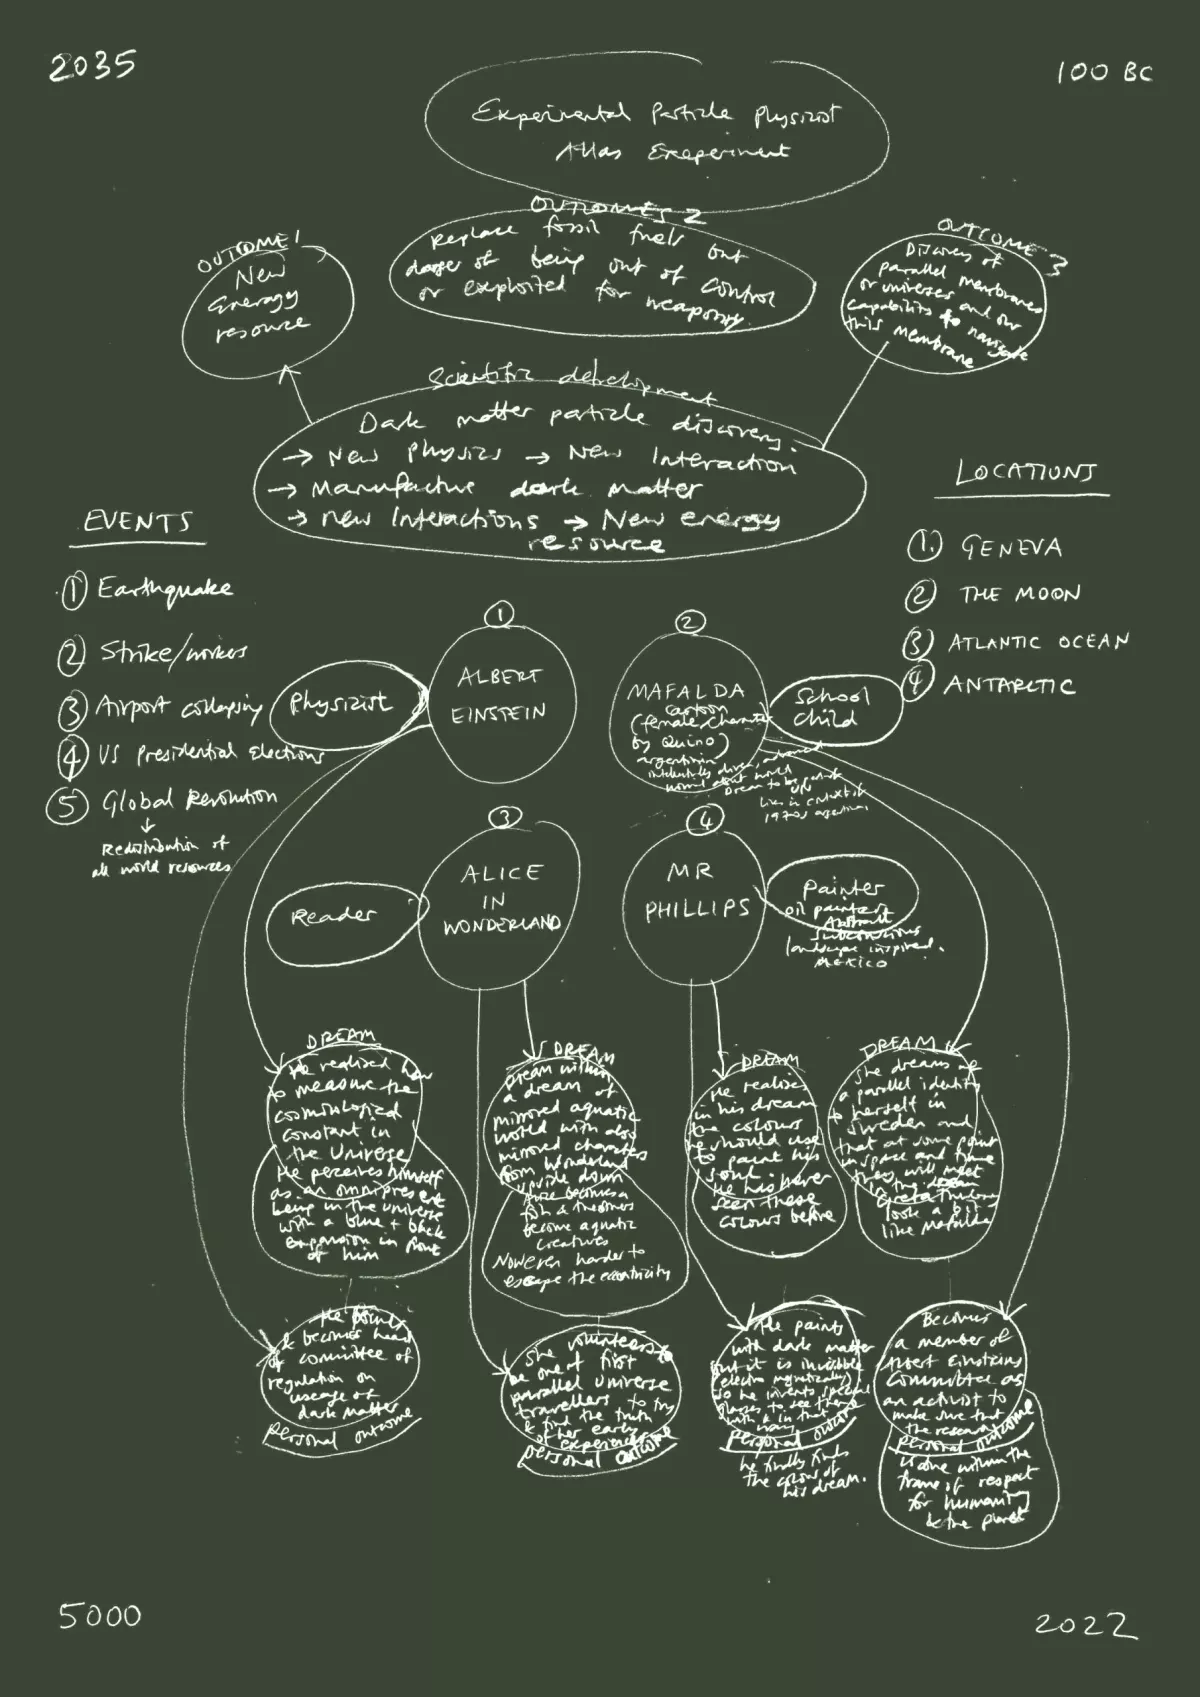 2035
100 BC
Experimental Particle Physizist
Atlas Exeperiment
OUTCOME 1
New
Energy
resource
OUTCOMES 2
Replace fossil fuels but
danger of being out of control
or exploited for weaponry.
OUTCOME 3
Discovery of
parallel membranes
or universes and our
capability to navigate
this membrane
Scientific development
Dark matter particle discovery.
→ New Physics → New Interaction
→ Manufacture dark matter
→ new Interactions → New energy
resource
EVENTS
① Earthquake
② Strike/workers
③ Airport collapsing
④ US Presidential Elections
⑤ Global Revolution
↓
Redistribution of
all world resources
LOCATIONS
①. GENEVA
② THE MOON
③ ATLANTIC OCEAN
④ ANTARCTIC
①
ALBERT
EINSTEIN
Physizist
②
MAFALDA
Cartoon
(female character
by Quino)
argentinian
School
Child
Lives in context of
1970s argentina
③
ALICE
IN
WONDERLAND
Reader
④
MR
PHILLIPS
Painter
oil painter
Abstract
Subconscious
landscape inspired.
MEXICO
DREAM
He realised how
to measure the
cosmological
constant in
the Universe
He perceives himself
as an omnipresent
being in the universe
with a blue + black
expansion in front
of him
DREAM
Dream within
a dream of
mirrored aquatic
world with also
mirrored characters
from Wonderland
upside down
Alice becomes a
fish & the others
become aquatic
creatures
However harder to
escape the eccentricity
DREAM
He realises
in his dream
the colours
he should use
to paint his
soul.
He has never
seen these
colours before
DREAM
She dreams of
a parallel identity
to herself in
Sweden and
that at some point
in space and time
they will meet
Greta Thunberg
looks a bit
like Mafalda
& becomes head
of committee of
regulation on
useage of
dark matter
personal outcome
She volunteers to
be one of first
parallel universe
travellers to try
& find the truth
of her early
experiences
personal outcome
He paints
with dark matter
but it is invisible
(electro magnetically)
so he invents special
glasses to see things
with & in that
way
personal outcome
he finally finds
the colour of
his dream.
Becomes
a member of
Albert Einsteins
Committee as
an activist to
make sure that
the research
personal outcome
is done within the
frame of respect
for humanity
& the planet
5000
2022